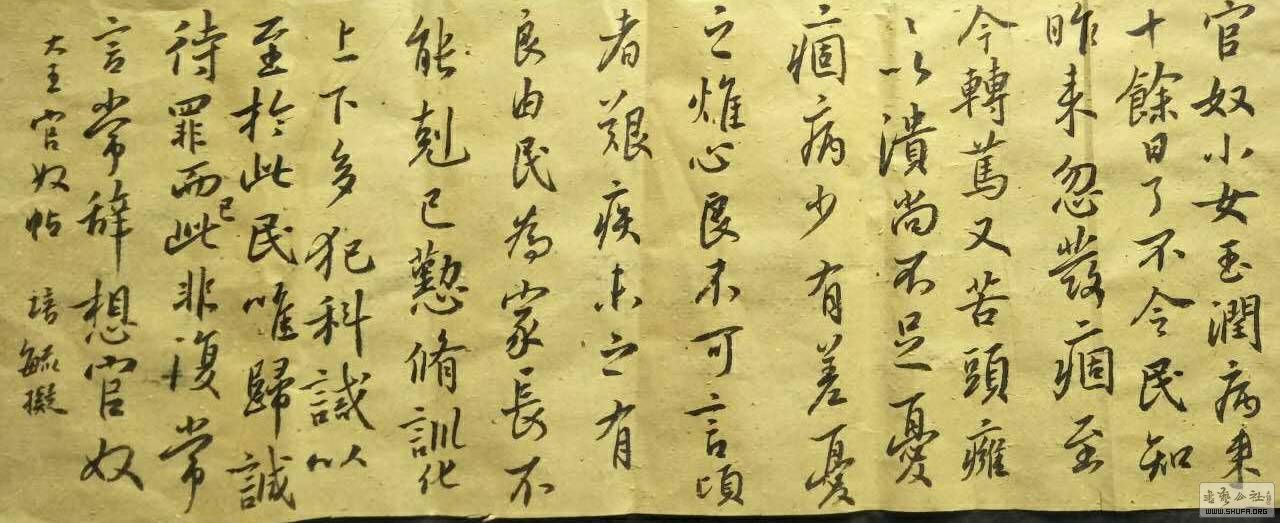 官奴小女玉潤病来
十餘日了不令民知
昨来忽發痼至
今轉篤又苦頭癰
〻以潰尚不足憂
痼病少有差憂
之燋心良不可言頃
者艱疾未之有
良由民為家長不
能剋己懃脩訓化
上下多犯科誡以
至於此民唯歸誠
待罪而已此非復常
言常辭想官奴
大王官奴帖 培毓擬
書藝公社
WWW.SHUFA.ORG